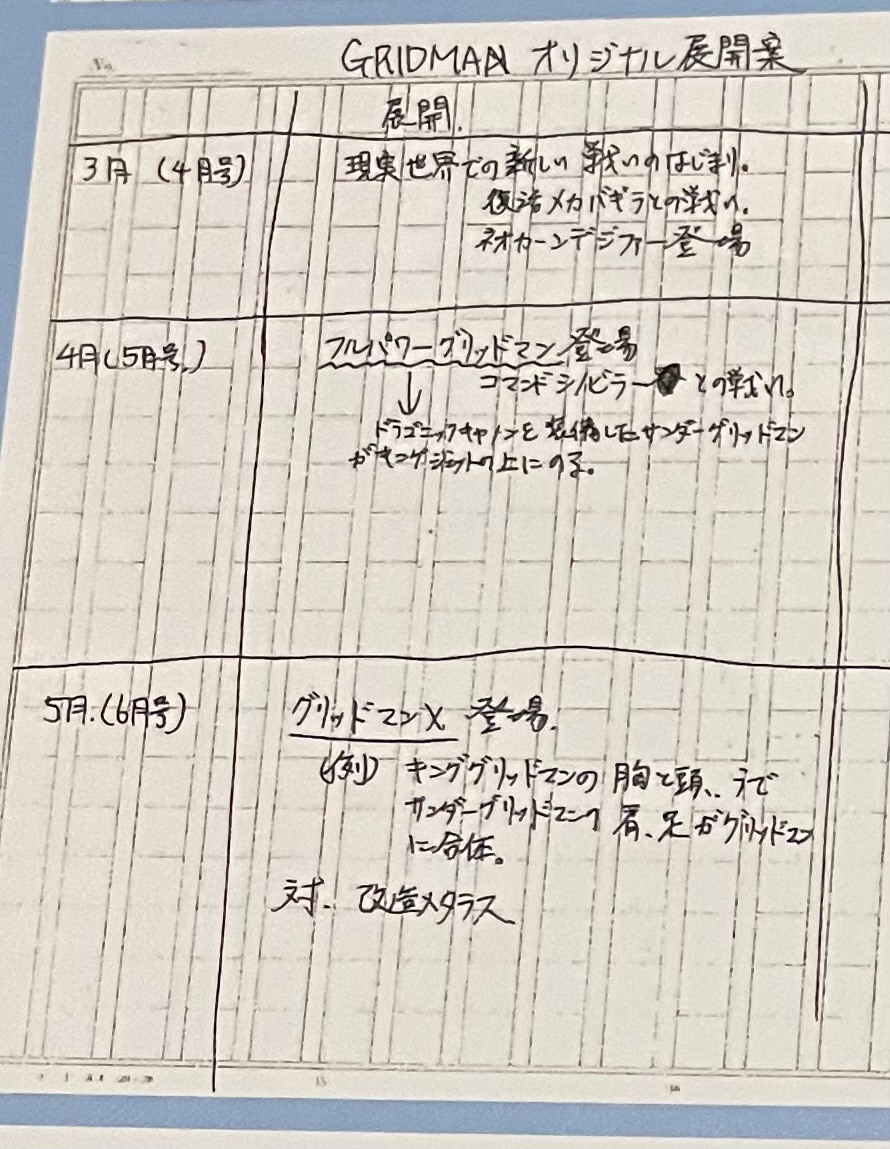 GRIDMAN オリジナル展開案
展開.
3月 (4月号)
現実世界での新しい戦いのはじまり。
復活メカバギラとの戦い。
ネオカーンデジファー登場
4月(5月号)
フルパワーグリッドマン登場
コマンドシノビラー との戦い。
↓
ドラゴニックキャノンを装備したサンダーグリッドマン
がキングジェットの上にのる。
5月.(6月号)
グリッドマンX 登場.
(例) キンググリッドマンの胸と頭、うで
サンダーグリッドマンの肩、足がグリッドマン
に合体。
対. 改造メタラス
15
16